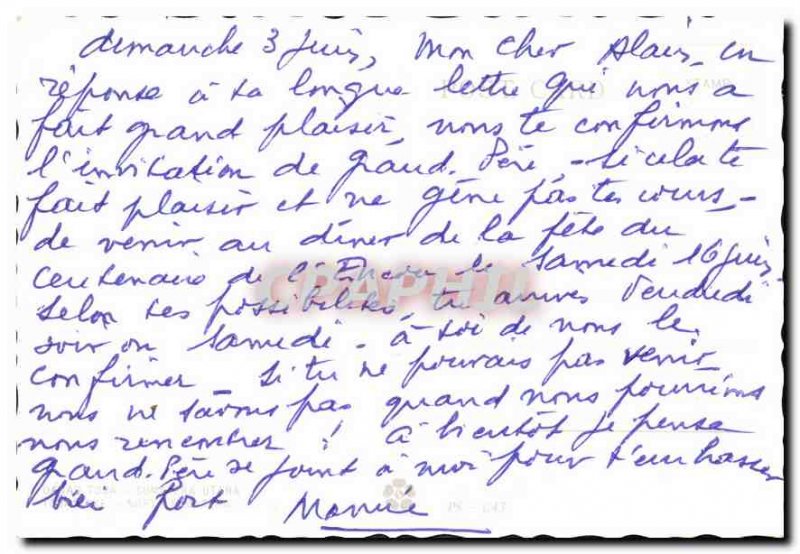 dimanche 3 Juin, Mon cher Alain, en
réponse à ta longue lettre qui nous a
fait grand plaisir, nous te confirmons
l'invitation de grand. Père, - si cela te
fait plaisir et ne gêne pas tes cours, -
de venir au dîner de la fête du
centenaire de l' le samedi 16 juin
selon tes possibilités, tu arrives Vendredi
soir ou samedi - à toi de nous le
confirmer - si tu ne pouvais pas venir
nous ne savons pas quand nous pourrions
nous rencontrer ! à bientôt je pense
grand. Père se joint à moi pour t'embrasser
bien fort